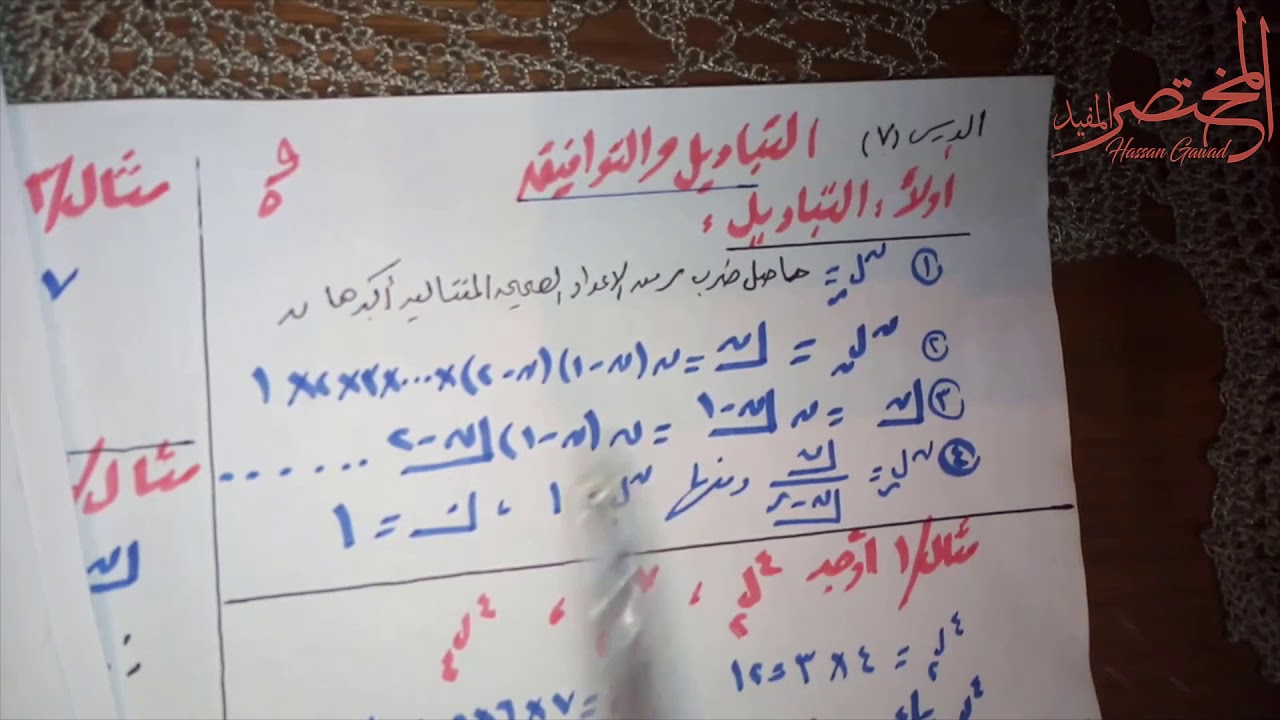 المختصر المفيد
Hassan Gawad
الدرس (٧) التباديل والتوافيق
أولاً: التباديل:
① ⁿلر = حاصل ضرب ر من الأعداد الصحيحة المتتالية أكبرها ن
② ⁿلن = ⌊ن = ن(ن-١)(ن-٢)×...×٣×٢×١
③ ⌊ن = ن ⌊ن-١ = ن(ن-١)⌊ن-٢ ......
④ ⁿلر = ⌊ن / ⌊ن-ر ومنها ⁿل = ١ ، ⌊٠ = ١
مثال/١ أوجد ⁴ل₂ ، ، ⁴ل₄
⁴ل₂ = ٤×٣=١٢
=٧×٦×
مثال/٣
٧
مثال/
⌊ن